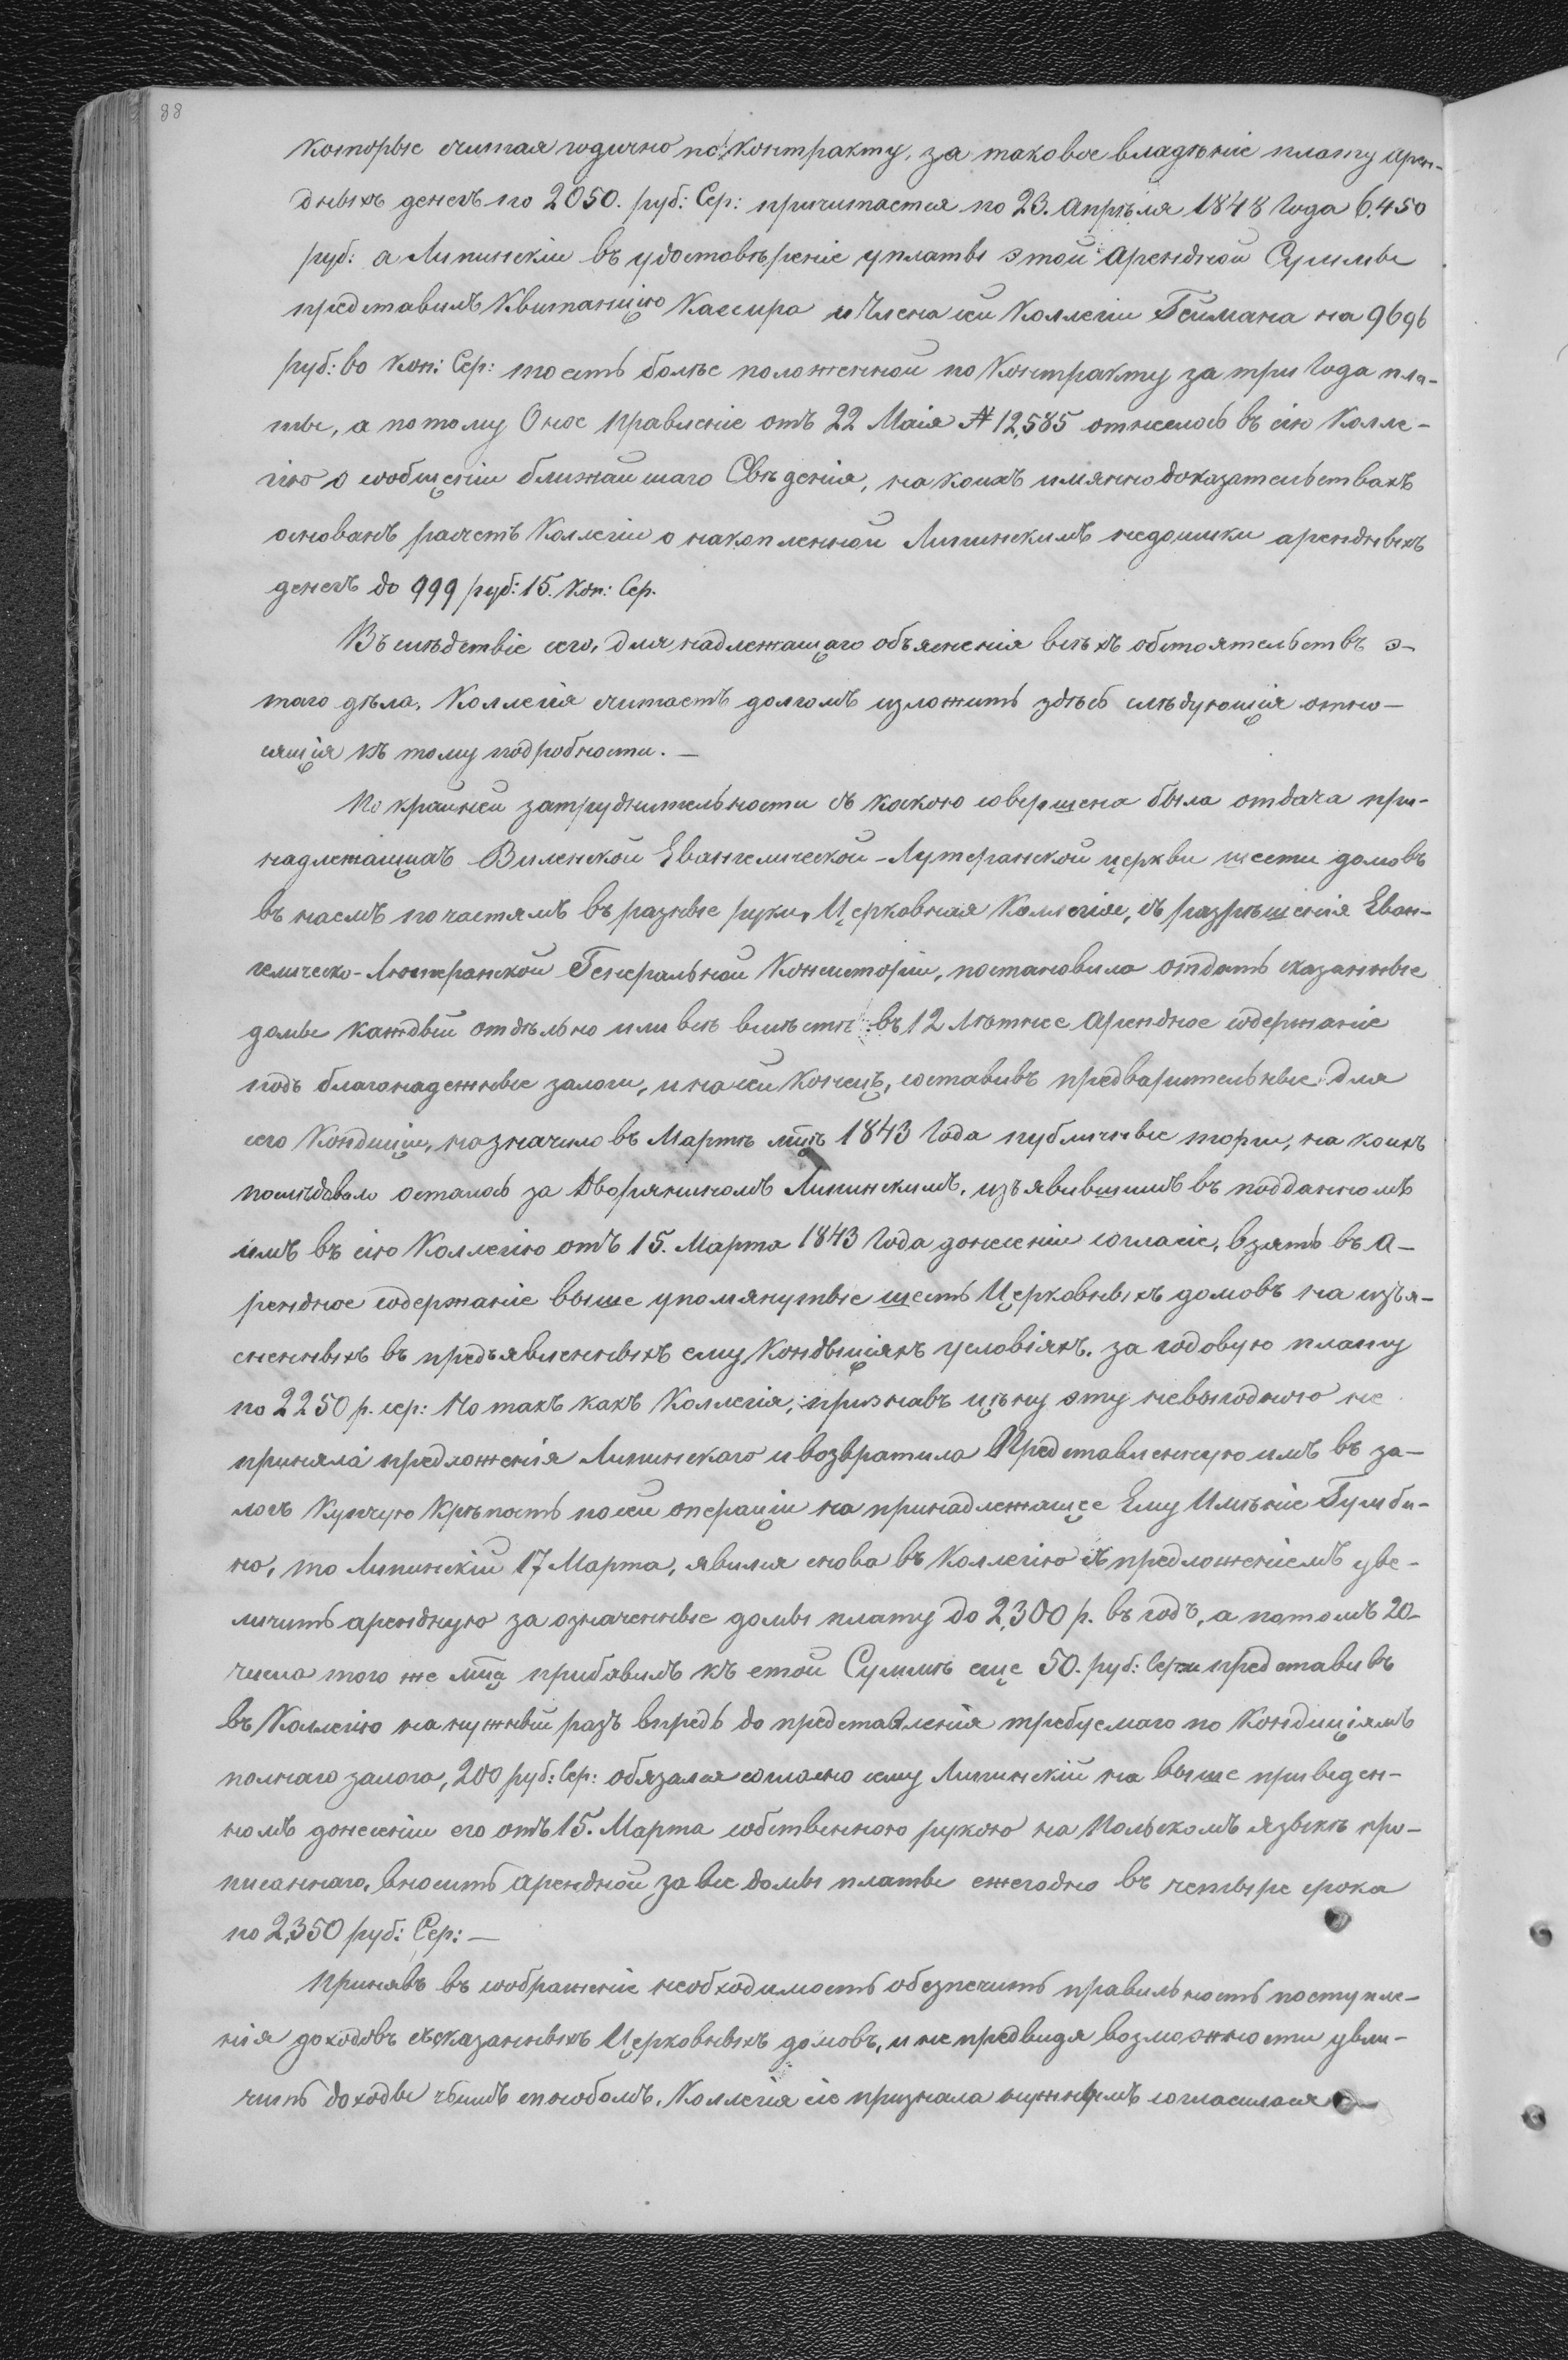 88
которые считая годично по контракту, за таковое владѣніе плату арен-
дныхъ денегъ по 2050. руб: Сер: причитается по 23. Апрѣля 1848 Года 6,450
руб: а Липинскій въ удостовѣреніе уплаты этой арендной Суммы
представилъ Квитанцію Кассира и Члена сей Коллегіи Геймана на 9696
руб: 60 коп: Сер: то есть болѣе положенной по Контракту за три Года пла-
ты, а потому Оное Правленіе отъ 22 Маія № 12,585 отнеслось въ сію Колле-
гію о сообщеніи ближайшаго Свѣденія, на коихъ имянно доказательствахъ
основанъ расчетъ Коллегіи о накопленной Липинскимъ недоимки арендныхъ
денегъ до 999 руб: 15. Коп: Сер.
Въ слѣдствіе сего, для надлежащаго объясненія всѣхъ обстоятельствъ э-
того дѣла, Коллегія считаетъ долгомъ изложить здѣсь слѣдующія отно-
сящія къ тому подробности. —
По крайней затруднительности съ какою совершена была отдача при-
надлежащихъ Виленской Евангелической-Лутеранской церкви шести домовъ
въ наемъ по частямъ въ разные руки, Церковная Коллегія, съ разрѣшенія Еван-
гелическо-Лютеранской Генеральной Консисторіи, постановила отдать сказанные
домы каждый отдѣльно или всѣ вмѣстѣ въ 12 Лѣтнее Арендное содержаніе
подъ благонадежные залоги, и на сей Конецъ, составивъ предварительные для
сего Кондиціи, назначило въ Мартѣ мцѣ 1843 Года публичные торги, на коихъ
послѣдовало осталось за Дворяниномъ Липинскимъ, изъявившимъ въ подданномъ
имъ въ сію Коллегію отъ 15. Марта 1843 Года донесеніи согласіе, взять въ А-
рендное содержаніе выше упомянутые шесть Церковныхъ домовъ на изъя-
сненныхъ въ предъявленныхъ ему Кондыціяхъ условіяхъ, за годовую плату
по 2250 р. сер: Но такъ какъ Коллегія, признавъ цѣну эту невыгодною не
приняла предложенія Липинскаго и возвратила Представленную имъ въ за-
логъ Купчую Крѣпость по сей операціи на принадлежащее Ему Имѣніе Гумби-
но, то Липинскій 17 Марта, явился снова въ Коллегію съ предложеніемъ уве-
личить арендную за означенные домы плату до 2,300 р. въ годъ, а потомъ 20-
числа того же мца прибавилъ къ етой Суммѣ еще 50. руб: сер: и представивъ
въ Коллегію на нужный разъ впредь до представленія требуемаго по Кондиціямъ
полнаго залога, 200 руб: Сер: обязался согласно сему Липинскій на выше приведен-
номъ донесеніи его отъ 15. Марта собственною рукою на Польскомъ языкѣ при-
писаннаго, вносить арендной за все домы платы ежегодно въ четыре срока
по 2,350 руб: Сер: —
Принявъ въ соображеніе необходимость обезпечить правильность поступле-
нія доходовъ съ сказанныхъ Церковныхъ домовъ, и не предвидя возможности увели-
чить доходы симъ способомъ, Коллегія сіе признала нужнымъ согласилася